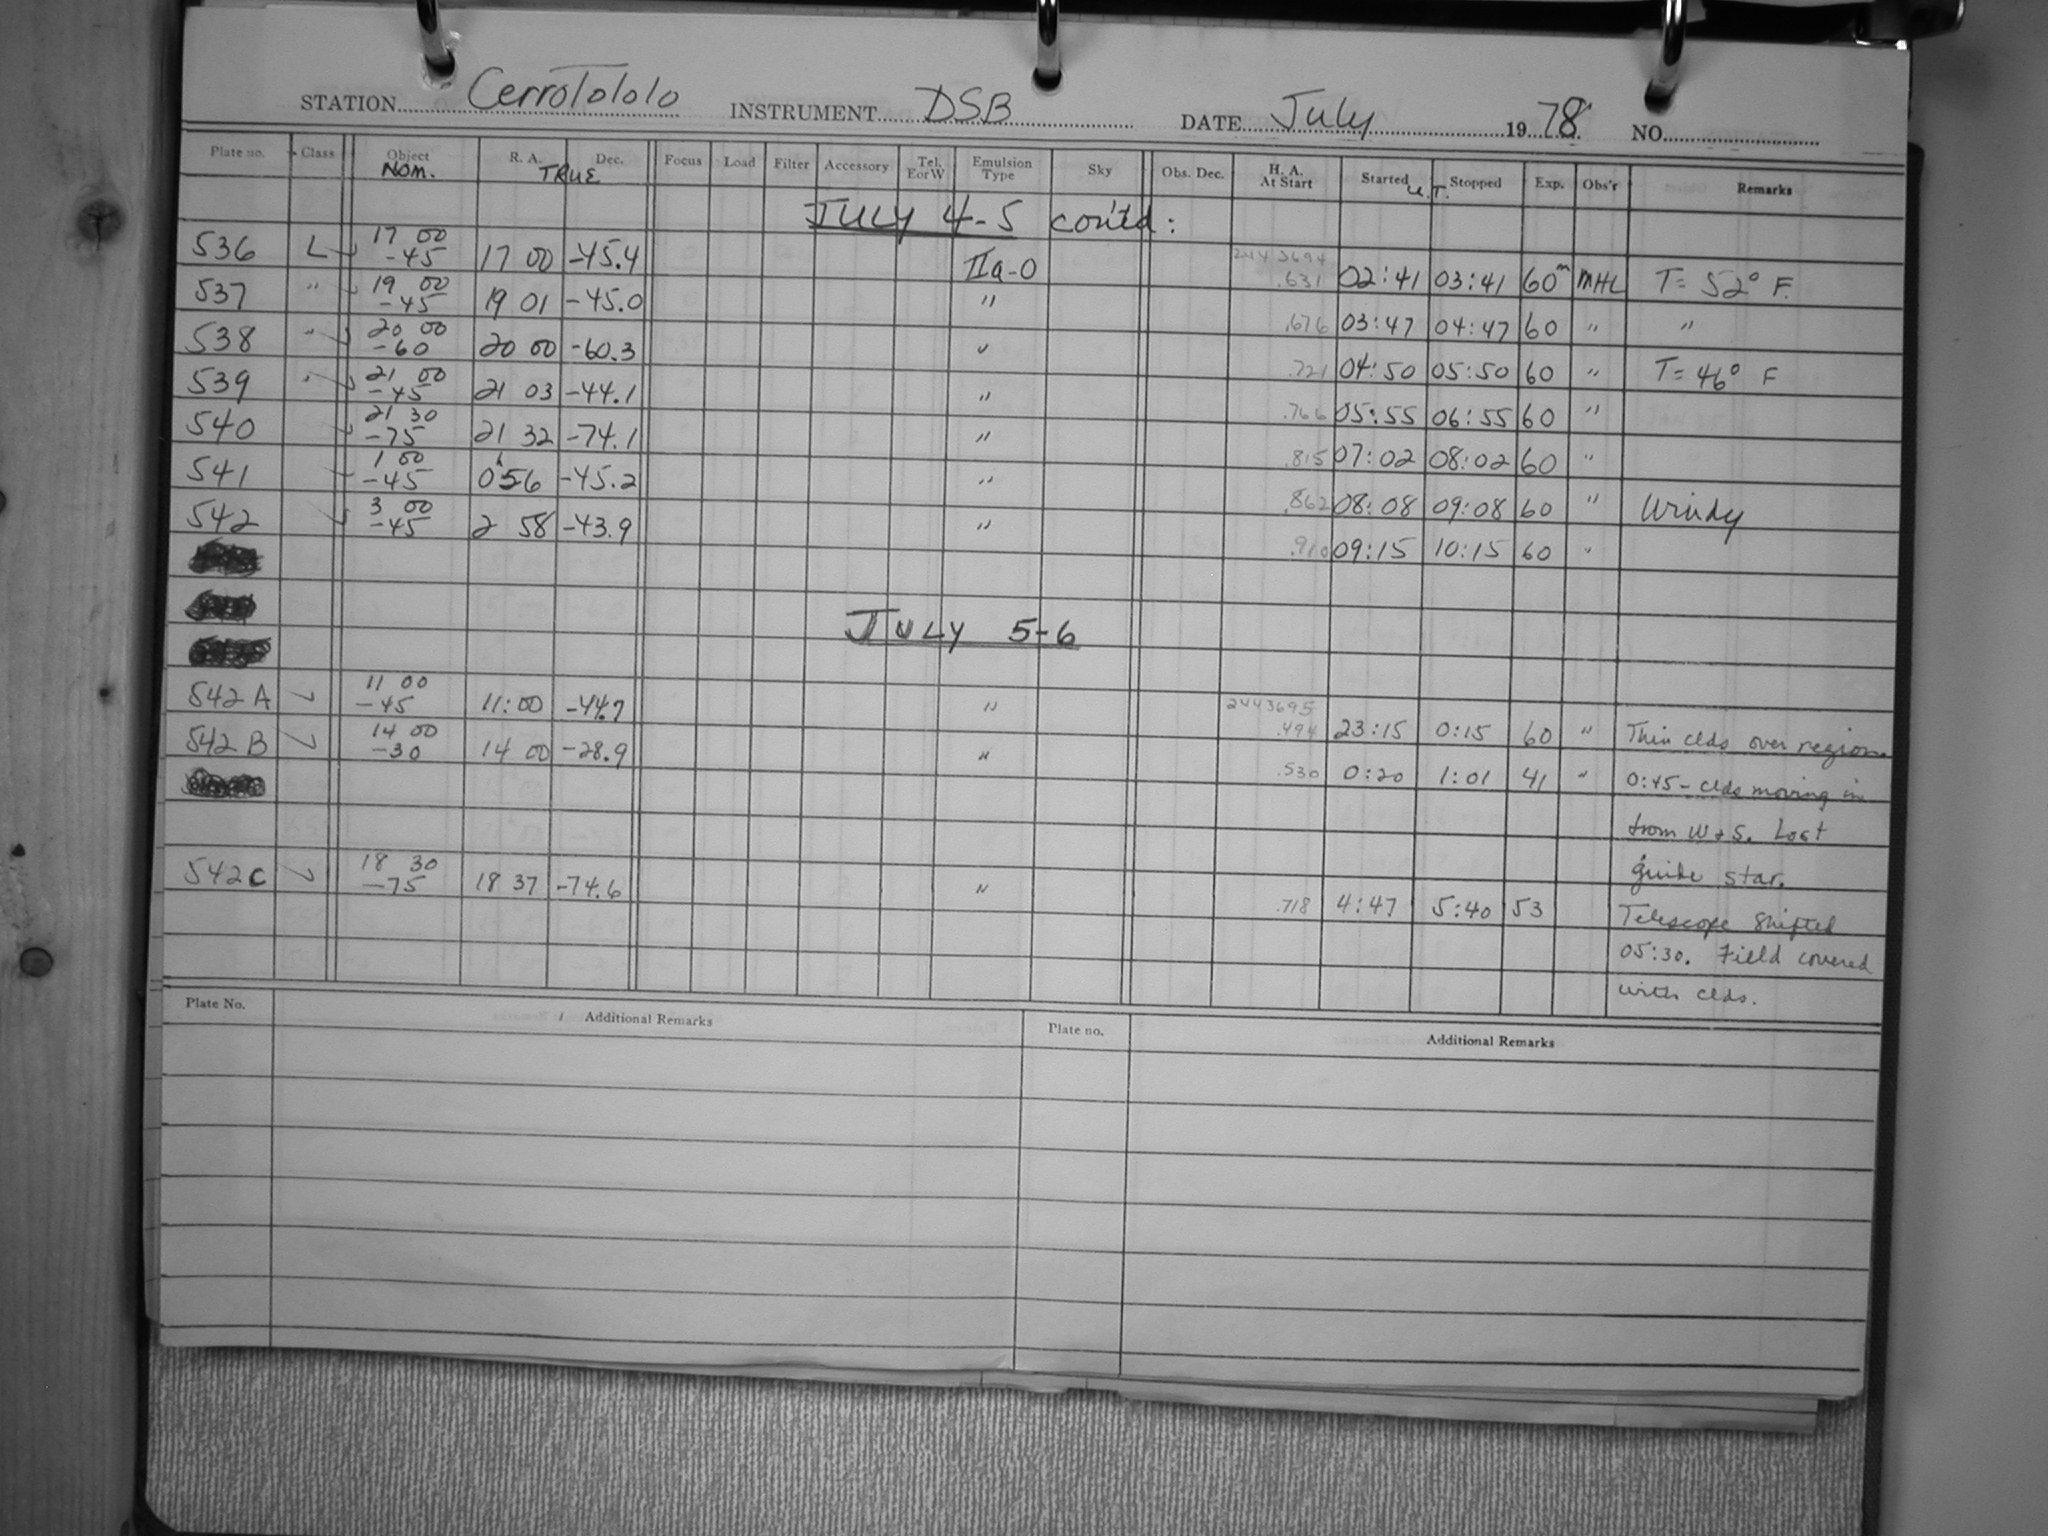 STATION Cerro Tololo INSTRUMENT DSB DATE July 1978 NO.
Plate no. Class Object R. A. Dec. Focus Load Filter Accessory Tel. E or W Emulsion Type Sky Obs. Dec. H. A. At Start Started Stopped Exp. Obs'r Remarks
NOM. TRUE U.T.
JULY 4-5 cont'd:
536 L 17 00 -45 17 00 -45.4 IIa-O 2443694 .631 02:41 03:41 60m MHL T= 52° F.
537 " 19 00 -45 19 01 -45.0 " .676 03:47 04:47 60 " "
538 " 20 00 -60 20 00 -60.3 " .721 04:50 05:50 60 " T= 46° F
539 " 21 00 -45 21 03 -44.1 " .766 05:55 06:55 60 "
540 21 30 -75 21 32 -74.1 " .815 07:02 08:02 60 "
541 1 00 -45 0 56 -45.2 " .862 08:08 09:08 60 " Windy
542 3 00 -45 2 58 -43.9 " .910 09:15 10:15 60 "
JULY 5-6
542A 11 00 -45 11:00 -44.7 " 2443695 .494 23:15 0:15 60 " Thin clds over region.
542B 14 00 -30 14 00 -28.9 " .530 0:20 1:01 41 " 0:45 - clds moving in
from W + S. Lost
guide star.
542C 18 30 -75 18 37 -74.6 " .718 4:47 5:40 53 Telescope shifted
05:30. Field covered
with clds.
Plate No. Additional Remarks Plate no. Additional Remarks